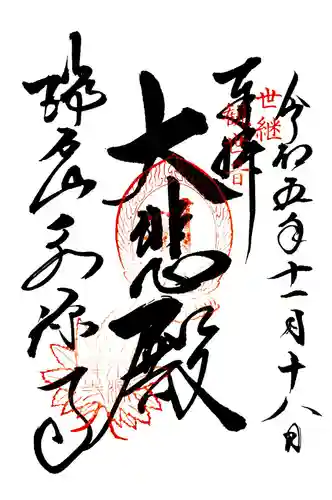 令和五年十一月十八日
奉拝
世継
観音
大悲殿
瑞石山永源寺